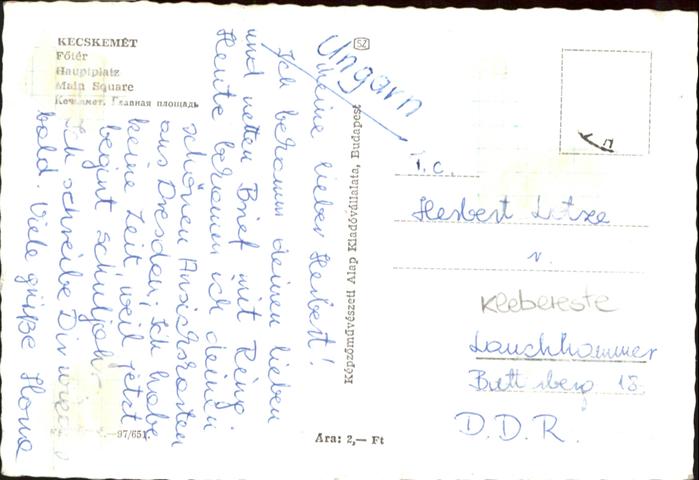 KECSKEMÉT
Főtér
Hauptplatz
Main Square
Кечкемет. Главная площадь
SZ
Ungarn
Meine lieber Herbert!
Ich bekamm deinen lieben
und netten Brief mit Ring.
Heute bekamen ich deinen
schönen Ansichskarten
aus Dresden; Ich habe
keine Zeit, weil jetzt
begint schuljahr.
Ich schreibe Dir
bald. Viele grüße Ilona
97/651.
Képzőművészeti Alap Kiadóvállalata, Budapest
Ára: 2,— Ft
T.c.
Herbert
Klebereste
Lauchhammer
15
D.D.R.